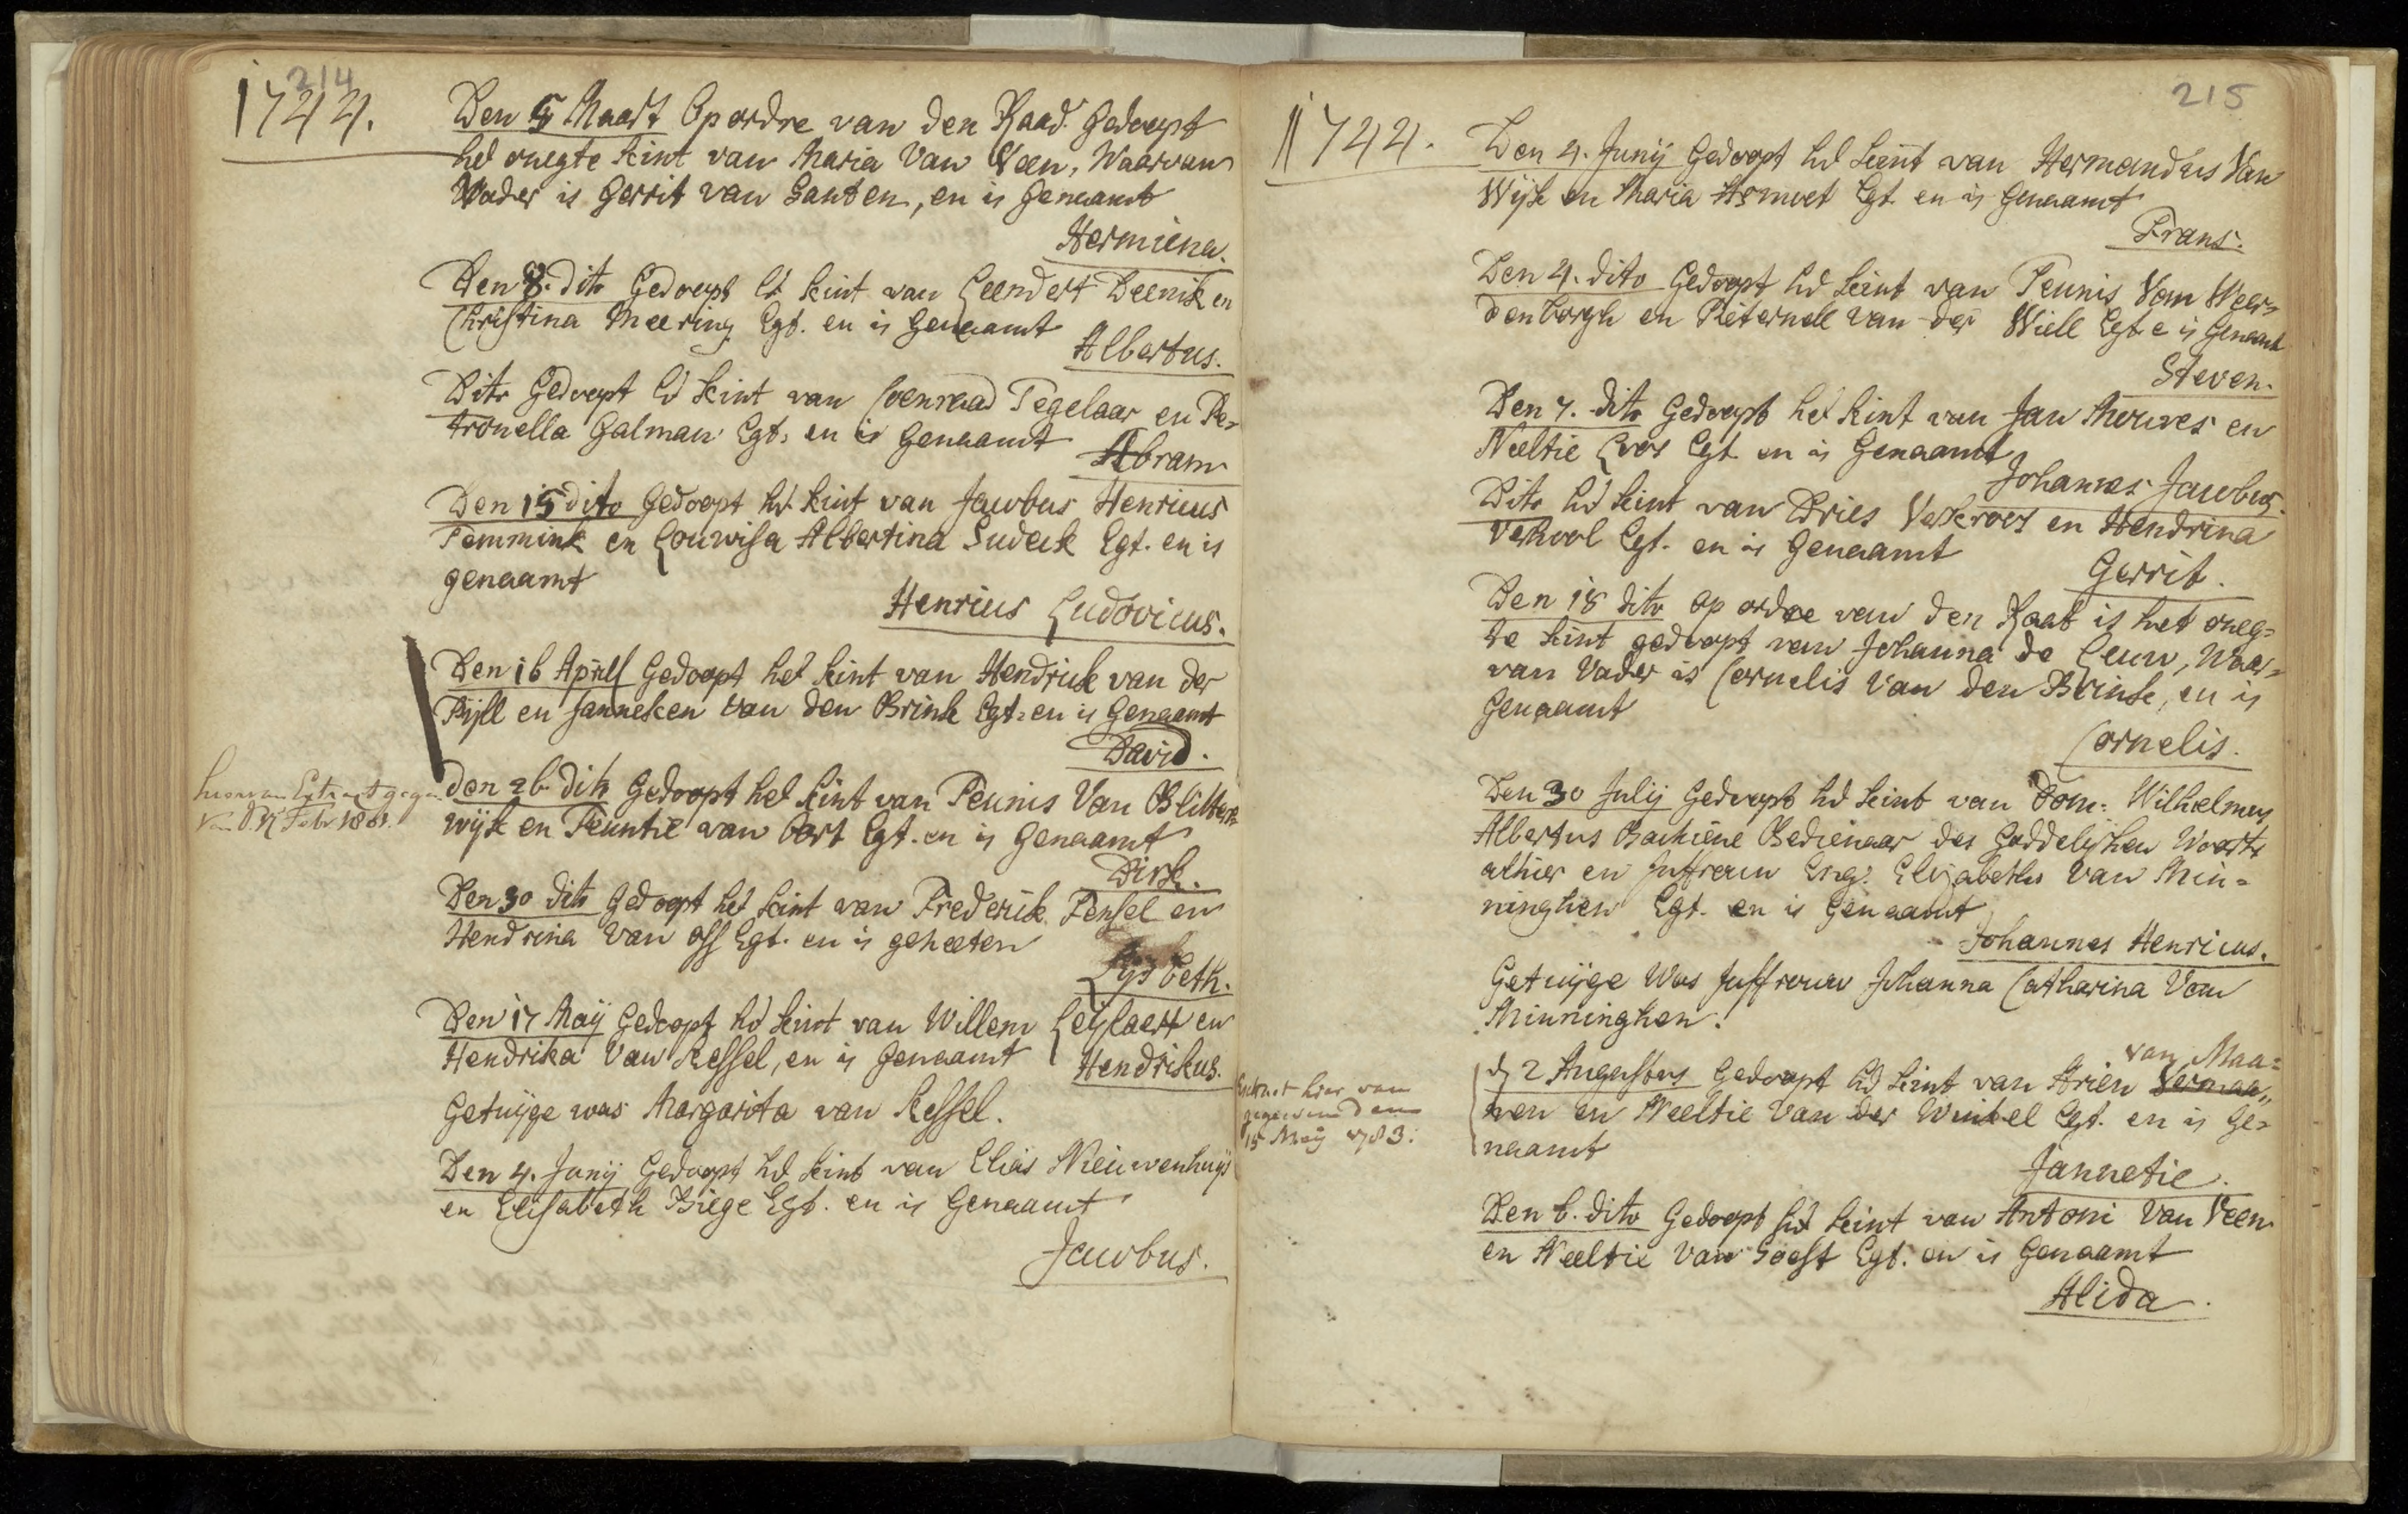 214
1744.
Den 5 Maart Op ordre van den Raad Gedoopt
het onegte kint van Maria Van Veen, Waarvan
Vader is Gerrit van Santen, en is Genaamt
Hermiena.
Den 8. dito Gedoopt het kint van Leendert Deenik en
Christina Meering Egt. en is Genaamt
Albertus.
Dito Gedoopt het kint van Coenraad Tegelaar en Pe=
tronella Galman Egt. en is Genaamt
Abram
Den 15 dito Gedoopt het kint van Jacobus Henricus
Temmink en Louwisa Albertina Sudeck Egt. en is
genaamt
Henricus Ludovicus.
Den 16 Aprill Gedoopt het kint van Hendrick van der
Pijll en Janneken van den Brink Egt. en is Genaamt
David.
hiervan Extract gegeven
den 26 dito Gedoopt het kint van Teunis Van Blitters
Febr 1801.
wijk en Teuntie van Oort Egt. en is Genaamt
Dirk.
Den 30 dito Gedoopt het kint van Frederik Pensel en
Hendrina Van Oss Egt. en is geheeten
Lijsbeth.
Den 17 Maij Gedoopt het kint van Willem Leijlaert en
Hendrika Van Kessel, en is Genaamt
Hendrikus.
Getuijge was Margarita van Kessel.
Den 4. Junij Gedoopt het kint van Elias Nieuwenhuijs
en Elisabeth Biege Egt. en is Genaamt
Jacobus.
215
1744.
Den 4. Junij Gedoopt het kint van Hermandus Van
Wijk en Maria Egt. en is Genaamt
Frans.
Den 4. dito Gedoopt het kint van Teunis Van Weer=
denborgh en Pieternell van der Wiell Egt. e is Genaamt
Steven.
Den 7. dito Gedoopt het kint van Jan Mouwes en
Neeltie Egt. en is Genaamt
Johannes Jacobus.
Dito het kint van Dries Verkroost en Hendrina
Verkool Egt. en is Genaamt
Gerrit.
Den 18 dito op ordre van den Raat is het oneg=
te kint gedoopt van Johanna de Leuw, Waar=
van Vader is Cornelis Van den Brink, en is
Genaamt
Cornelis.
Den 30 Julij Gedoopt het kint van Dom: Wilhelmus
Albertus Bachiene Bedienaar des Goddelijken Woorts
alhier en Juffrouw Eng: Elisabetha Van Min=
ninghen Egt. en is Genaamt
Johannes Henricus.
Getuijge Was Juffrouw Johanna Catharina Van
Minninghen.
van Maa=
d 2 Augustus Gedoopt het kint van Arien Vermaa,,
Extract hier van
gegeven den
nen en Neeltie van der Winkel Egt. en is Ge=
15 Maij 1783:
naamt
Jannetie.
Den 6. dito Gedoopt het kint van Antoni Van Veen
en Neeltie Van Soest Egt. en is Genaamt
Alida.